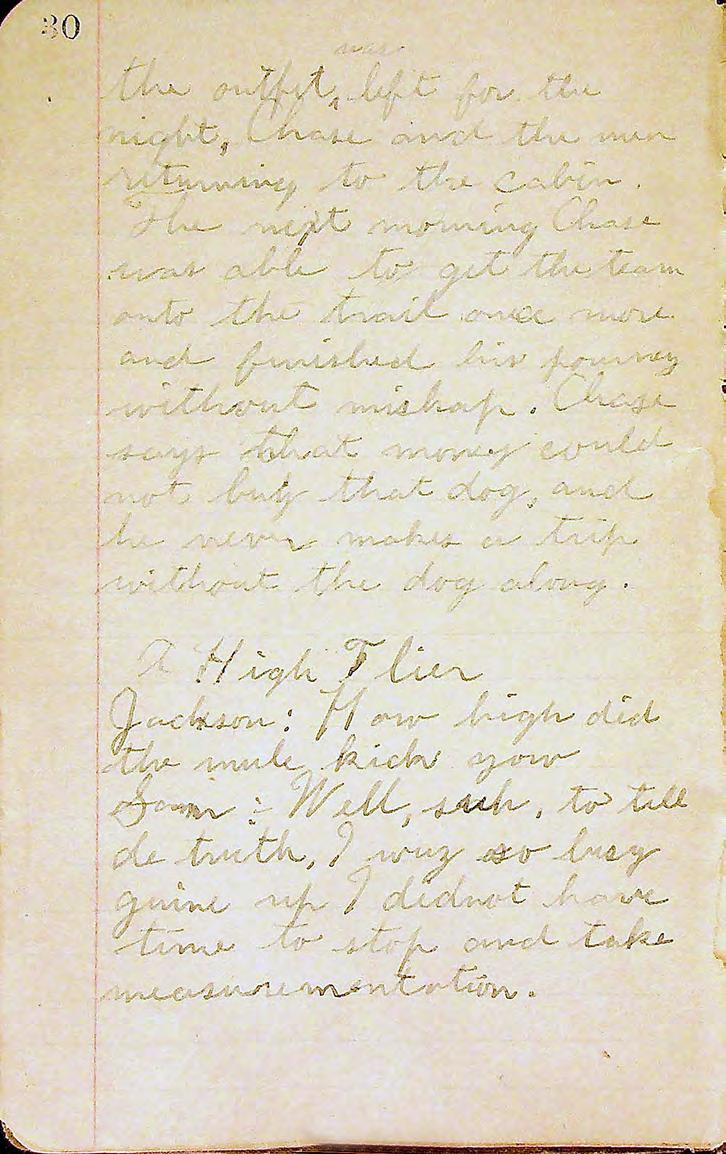 30
was
the outfit, left for the
night, Chase and the men
returning to the cabin.
The next morning Chase
was able to get the team
onto the trail once more
and finished his journey
without mishap. Chase
says that money could
not buy that dog, and
he never makes a trip
without the dog along.
A High Flier
Jackson: How high did
the mule kick yow
Sam:- Well, suh, to tell
de truth, I wuz so busy
guine up I didnot have
time to stop and take
measurementation.